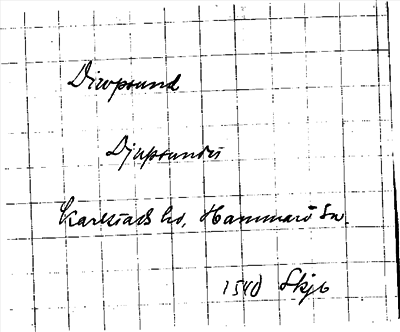 Diwpsund
Djupsundet
Karlstads hd, Hammarö Sn
1540 Skjb